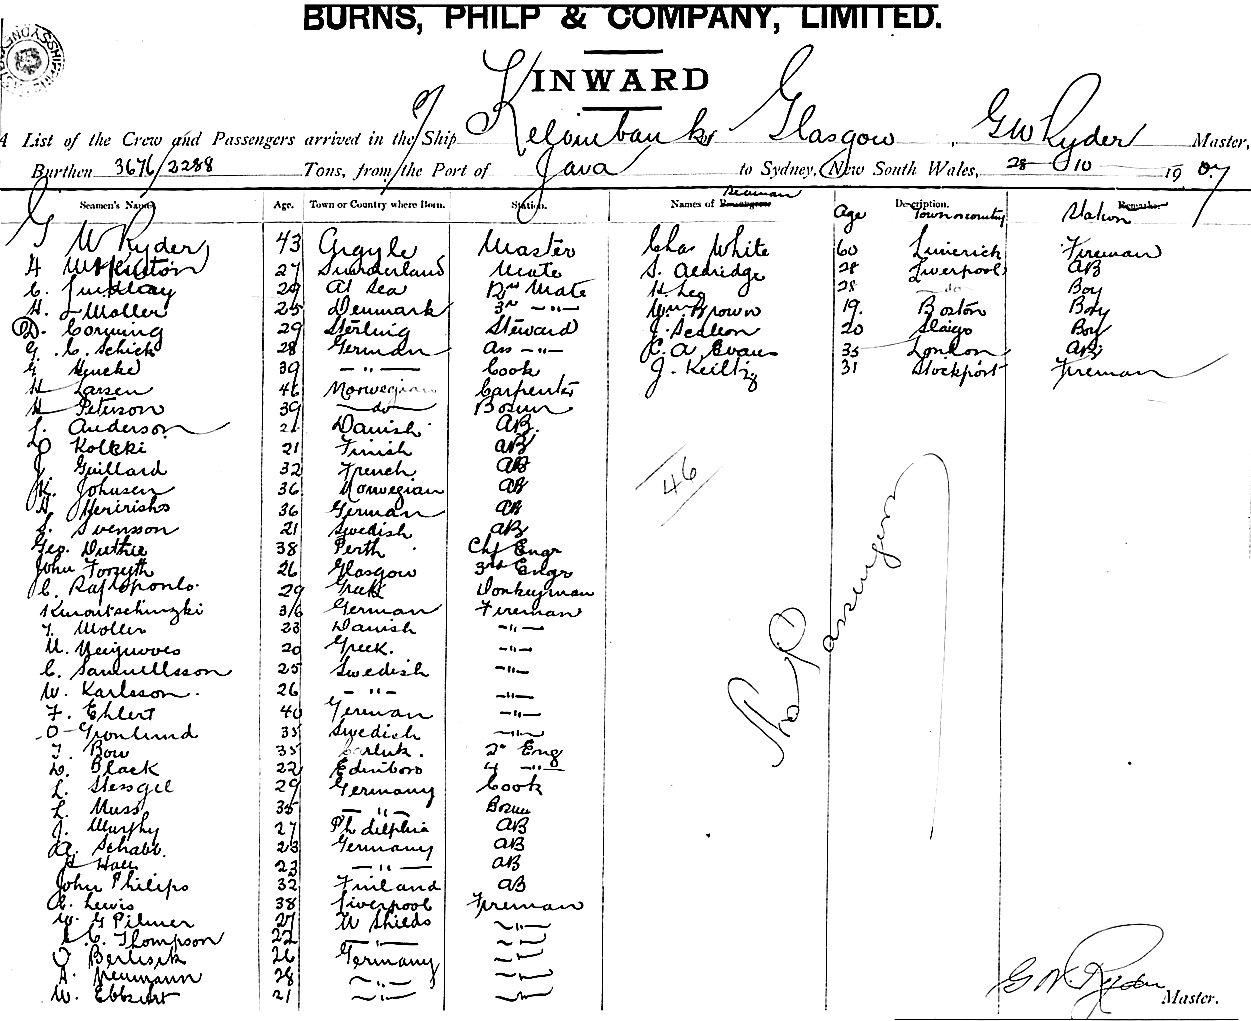 BURNS, PHILP & COMPANY, LIMITED.
INWARD
A List of the Crew and Passengers arrived in the Ship Kelvinbank of Glasgow, G W Ryder Master,
Burthen 3676/2288 Tons, from the Port of Java to Sydney, New South Wales, 28 10 1907
Seamen's Names Age. Town or Country where Born. Station. Names of Seaman Age Description. Town or country Station
G W Ryder 43 Argyle Master Chas White 60 Limerick Fireman
27 Sunderland Mate S. Aldridge 28 Liverpool AB
C. Lindsay 29 At Sea 2nd Mate H. Leg 28 do Boy
H. Moller 25 Denmark 3rd -"- Wm Brown 19. Boston Boy
D. Corning 29 Sterling Steward J. 20 Sligo Boy
G. C. Schick 28 German Ass -"- C. A. Evans 35 London AB
G 39 -"- Cook J. 31 Stockport Fireman
H Larsen 46 Norwegian Carpenter
H Peterson 39 do Bosun
L. Anderson 21 Danish AB
O 21 Finish AB
J. Guillard 32 French AB
K. Johnsen 36 Norwegian AB
H. 36 German AB
S. Svensson 21 Swedish AB
Geo. Duthie 38 Perth Chf Engr
John Forsyth 26 Glasgow 3rd Engr
C. 29 Greek Donkeyman
36 German Fireman
T. Moller 23 Danish -"-
M. 20 Greek. -"-
C. Samuellsson 25 Swedish -"-
W. Karlsson. 26 -"- -"-
F. Ehlert 40 German -"-
O Gronlund 35 Swedish -"-
T. Bow 35 Carluk. 2nd Eng
D. Black 22 Edinboro 4 -"-
L. 29 Germany Cook
L. Muss 35 -"- Bosun
J. Murphy 27 Philidelphia AB
A. Schabb. 23 Germany AB
H Hall 23 -"- AB
John Philips 32 Finland AB
A. Lewis 38 Liverpool Fireman
W. G Pilmer 27 N Shields -"-
C. Thompson 22 -"- -"-
O 26 Germany -"-
A. Neumann 28 -"- -"-
W. 21 -"- -"-
46
No Passengers
G W Ryder Master.